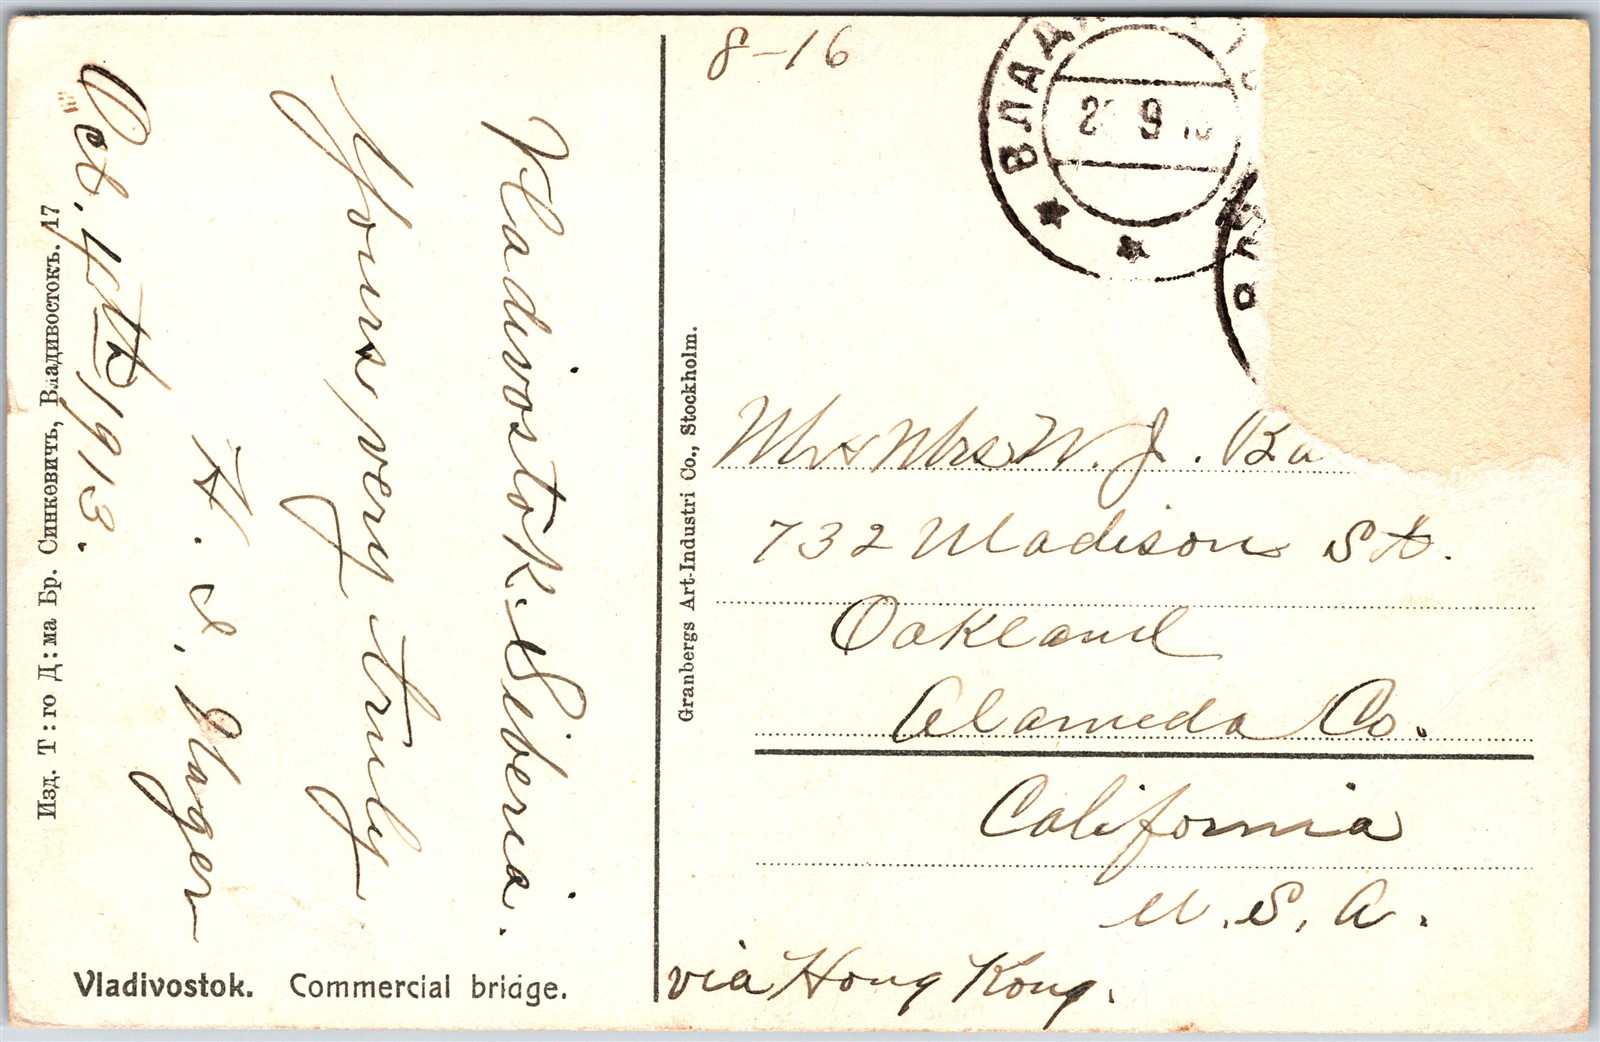 8-16
ВЛАД
9
Vladivostok. Siberia.
Yours very truly
H. I. Hager
Oct. 4th 1913.
Изд. Т: го Д: ма Бр. Синкевичъ, Владивостокъ. 17
Vladivostok. Commercial bridge.
Granbergs Art-Industri Co., Stockholm.
Mr & Mrs W. J. Ba
732 Madison St.
Oakland
Alameda Co.
California
U.S.A.
via Hong Kong.